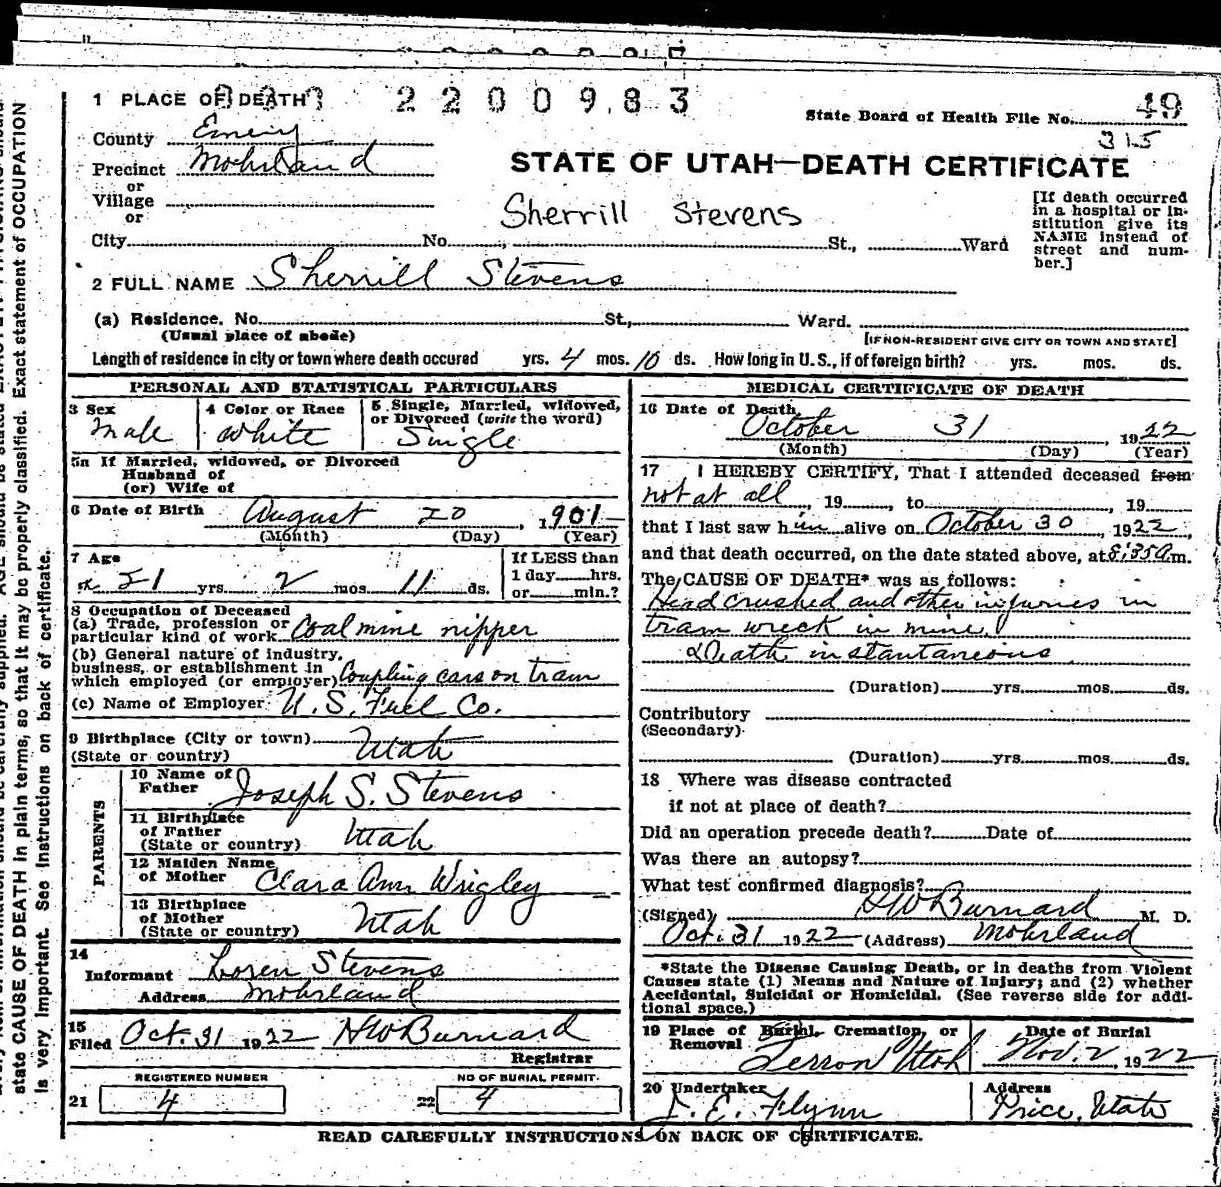 1 PLACE OF DEATH 2200983
State Board of Health File No. 49
315
County Emery
Precinct Mohrland
or
Village
or
STATE OF UTAH—DEATH CERTIFICATE
Sherrill Stevens
[If death occurred in a hospital or institution give its NAME instead of street and number.]
City No. St., Ward
2 FULL NAME Sherrill Stevens
(a) Residence. No. St., Ward.
(Usual place of abode) [IF NON-RESIDENT GIVE CITY OR TOWN AND STATE]
Length of residence in city or town where death occured yrs. 4 mos. 10 ds. How long in U.S., if of foreign birth? yrs. mos. ds.
PERSONAL AND STATISTICAL PARTICULARS
3 Sex Male
4 Color or Race White
5 Single, Married, widowed, or Divorced (write the word) Single
5a If Married, widowed, or Divorced
Husband of
(or) Wife of
6 Date of Birth August 20, 1901
(Month) (Day) (Year)
7 Age 21 yrs. 2 mos. 11 ds.
If LESS than
1 day hrs.
or min.?
8 Occupation of Deceased
(a) Trade, profession or particular kind of work Coal mine nipper
(b) General nature of industry, business, or establishment in which employed (or employer) Coupling cars on tram
(c) Name of Employer U. S. Fuel Co.
9 Birthplace (City or town) Utah
(State or country)
PARENTS
10 Name of Father Joseph S. Stevens
11 Birthplace of Father (State or country) Utah
12 Maiden Name of Mother Clara Ann Wrigley
13 Birthplace of Mother (State or country) Utah
14
Informant Loren Stevens
Address Mohrland
15
Filed Oct. 31 1922 HW Burnard
Registrar
REGISTERED NUMBER
21 4
NO OF BURIAL PERMIT
22 4
MEDICAL CERTIFICATE OF DEATH
16 Date of Death October 31, 1922
(Month) (Day) (Year)
17 I HEREBY CERTIFY, That I attended deceased from
not at all, 19, to, 19
that I last saw him alive on October 30 1922,
and that death occurred, on the date stated above, at 8:35 a m.
The CAUSE OF DEATH* was as follows:
Head crushed and other injuries in
tram wreck in mine.
Death instantaneous
(Duration) yrs. mos. ds.
Contributory
(Secondary)
(Duration) yrs. mos. ds.
18 Where was disease contracted
if not at place of death?
Did an operation precede death? Date of
Was there an autopsy?
What test confirmed diagnosis?
(Signed) HW Burnard M. D.
Oct. 31 1922 (Address) Mohrland
*State the Disease Causing Death, or in deaths from Violent
Causes state (1) Means and Nature of Injury; and (2) whether
Accidental, Suicidal or Homicidal. (See reverse side for additional space.)
19 Place of Burial, Cremation, or Removal Ferron Utah
Date of Burial Nov. 2 1922
20 Undertaker J. E. Flynn
Address Price, Utah
READ CAREFULLY INSTRUCTIONS ON BACK OF CERTIFICATE.
state CAUSE OF DEATH in plain terms, so that it may be properly classified. Exact statement of OCCUPATION
is very important. See instructions on back of certificate.